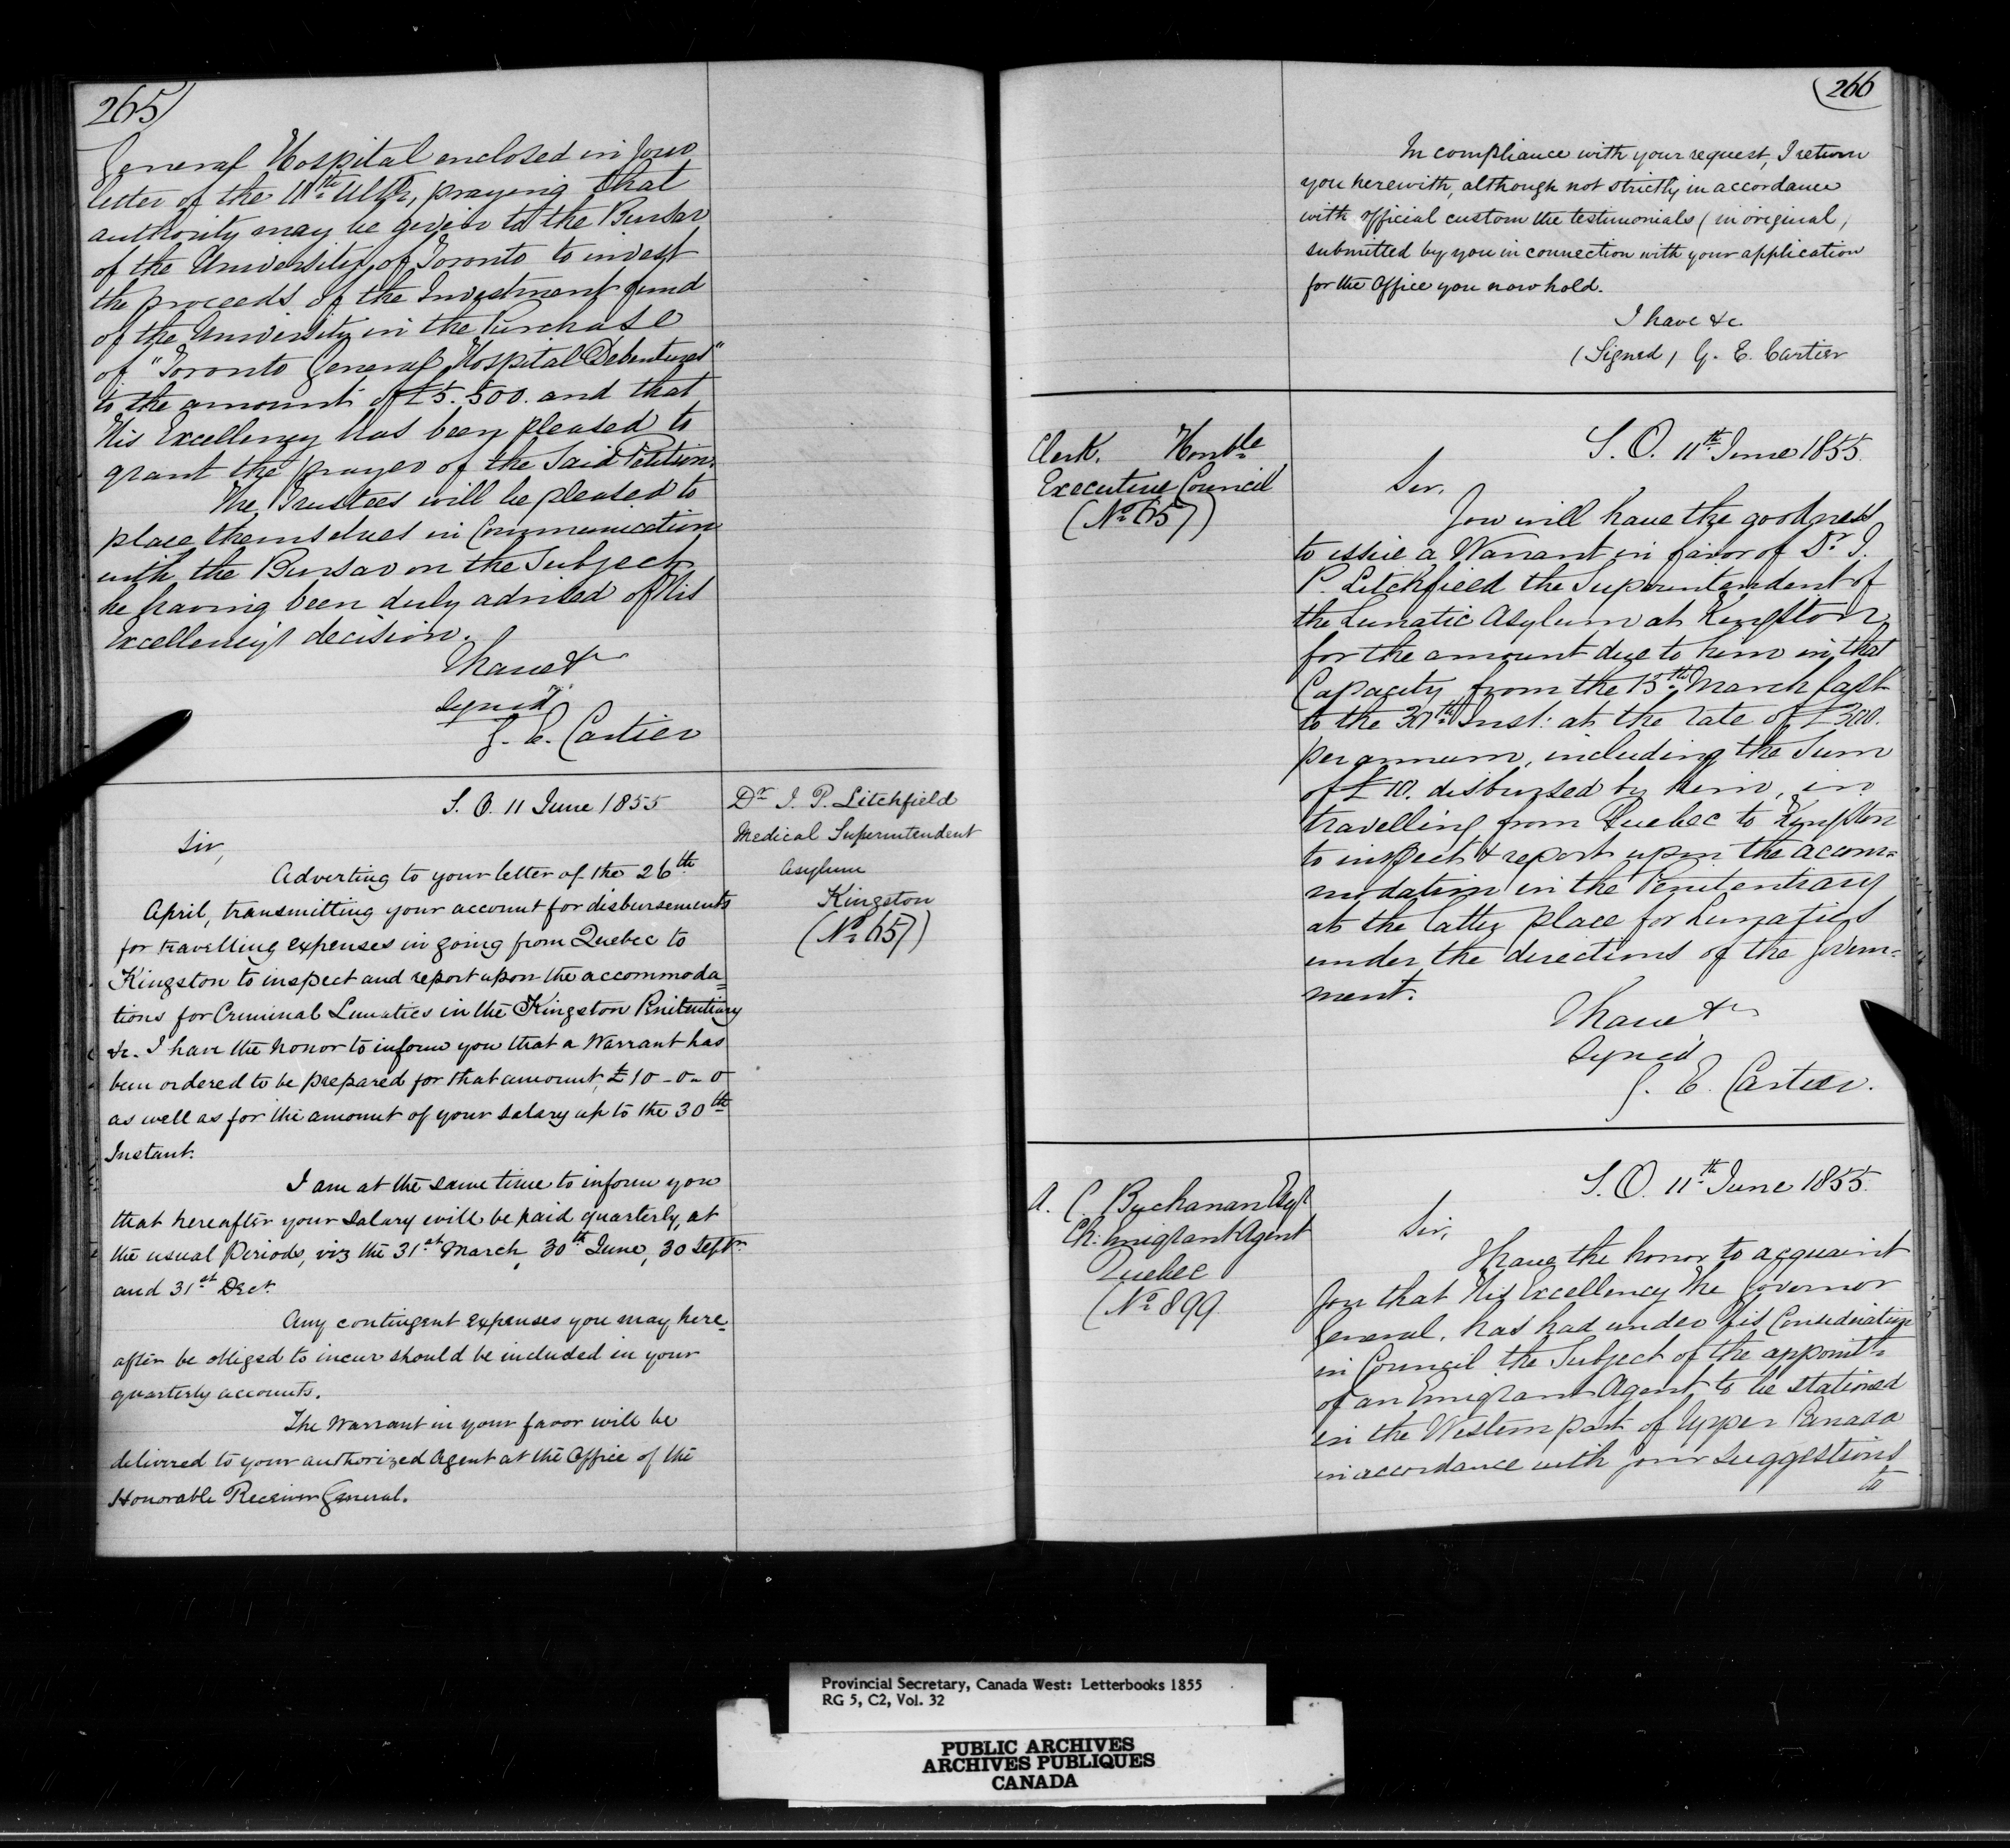 265
General Hospital enclosed in your
letter of the 11th Ulto, praying that
authority may be given to the Bursar
of the University of Toronto to invest
the proceeds of the Investment fund
of the University in the Purchase
of "Toronto General Hospital Debentures"
to the amount of £5.500. and that
His Excellency has been pleased to
grant the prayer of the Said Petition.
The Trustees will be pleased to
place themselves in Communication
with the Bursar on the Subject
he having been duly advised of His
Excellency's decision.
I have &c
Signed
G. E. Cartier
S. O. 11 June 1855
Dr. J. P. Litchfield
Medical Superintendent
Asylum
Kingston
(No 657)
Sir,
Adverting to your letter of the 26th
April, transmitting your account for disbursements
for travelling expenses in going from Quebec to
Kingston to inspect and report upon the accommoda=
tions for Criminal Lunatics in the Kingston Penitentiary
&c. I have the honor to inform you that a Warrant has
been ordered to be prepared for that amount, £10-0-0
as well as for the amount of your salary up to the 30th
Instant.
I am at the same time to inform you
that hereafter your salary will be paid quarterly, at
the usual Periods, viz the 31st March, 30th June, 30 Septr
and 31st Decr.
Any contingent expenses you may here=
after be obliged to incur should be included in your
quarterly accounts.
The Warrant in your favor will be
delivered to your authorized Agent at the Office of the
Honorable Receiver General.
266
In compliance with your request, I return
you herewith, although not strictly in accordance
with official custom the testimonials (in original)
submitted by you in connection with your application
for the Office you now hold.
I have &c.
(Signed) G. E. Cartier
Clerk. Honble
Executive Council
(No 657)
S. O. 11th June 1855.
Sir,
You will have the goodness
to issue a Warrant in favor of Dr. J.
P. Litchfield the Superintendent of
the Lunatic Asylum at Kingston
for the amount due to him in that
Capacity from the 15th March last
to the 30th Inst: at the rate of £300.
per annum, including the Sum
of £10. disbursed by him, in
travelling from Quebec to Kingston
to inspect & report upon the accom=
modation in the Penitentiary
at the latter place for Lunatics
under the directions of the Govern=
ment.
I have &c
Signed
G. E. Cartier.
A. C. Buchanan Esqr
Ch: Emigrant Agent
Quebec
(No 899
S. O. 11th June 1855.
Sir,
I have the honor to acquaint
you that His Excellency the Governor
General, has had under his Consideration
in Council the Subject of the appoint=
of an Emigrant Agent to be stationed
in the Western part of Upper Canada
in accordance with your suggestions
to
Provincial Secretary, Canada West: Letterbooks 1855
RG 5, C2, Vol. 32
PUBLIC ARCHIVES
ARCHIVES PUBLIQUES
CANADA